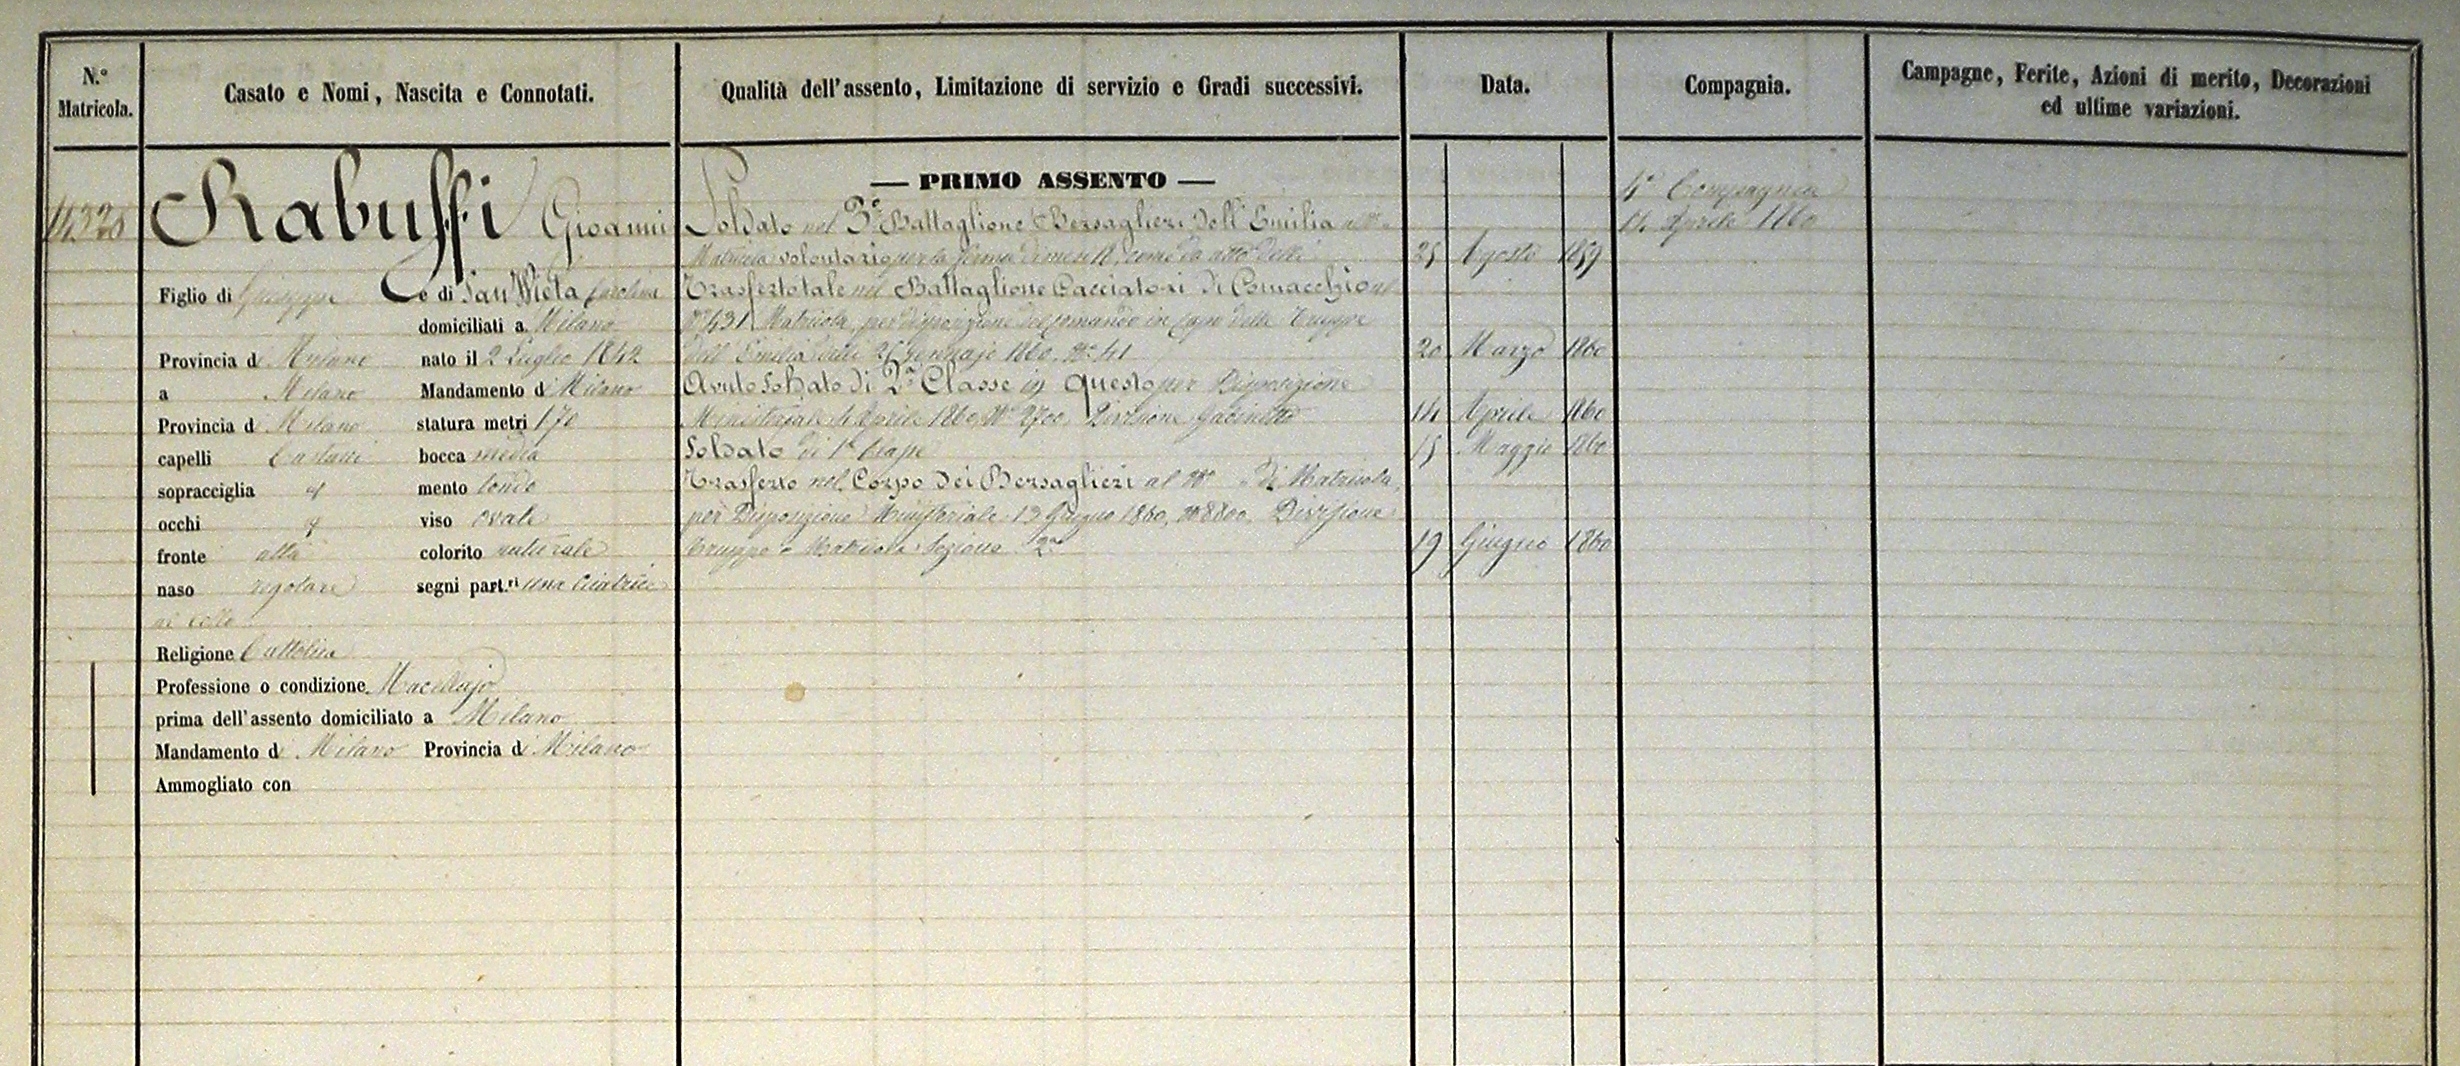 N.° Matricola.
Casato e Nomi, Nascita e Connotati.
Qualità dell'assento, Limitazione di servizio e Gradi successivi.
Data.
Compagnia.
Campagne, Ferite, Azioni di merito, Decorazioni
ed ultime variazioni.
14325
Rabuffi Gioanni
Figlio di Giuseppe e di San Wieta Carolina
domiciliati a Milano
Provincia di Milano nato il 2 Luglio 1842
a Milano Mandamento di Milano
Provincia di Milano statura metri 1 70
capelli Castani bocca media
sopracciglia id mento tondo
occhi id viso ovale
fronte alta colorito naturale
naso regolare segni part.ri una cicatrice
al collo
Religione Cattolica
Professione o condizione Macellajo
prima dell'assento domiciliato a Milano
Mandamento di Milano Provincia di Milano
Ammogliato con
— PRIMO ASSENTO —
Soldato nel 3° Battaglione Bersaglieri dell'Emilia al N°
Matricola volontario per la ferma di mesi 18, come da atto delli 25 Agosto 1859
Trasfert o tale nel Battaglione Cacciatori di Comacchio al
N° 431 Matricola, per disposizione del Comando in Capo delle Truppe
dell'Emilia delli 26 Gennajo 1860, N° 41 20 Marzo 1860
Avuto Soldato di 2ª Classe in questo per Disposizione
Ministeriale 4 Aprile 1860, N° 2700, Divisione Gabinetto 14 Aprile 1860
Soldato di 1ª Classe 15 Maggio 1860
Trasferto nel Corpo dei Bersaglieri al N° di Matricola,
per Disposizione Ministeriale 13 Giugno 1860, N° 8800, Divisione
Truppe e Matricola Sezione 2ª 19 Giugno 1860
4ª Compagnia
14 Aprile 1860